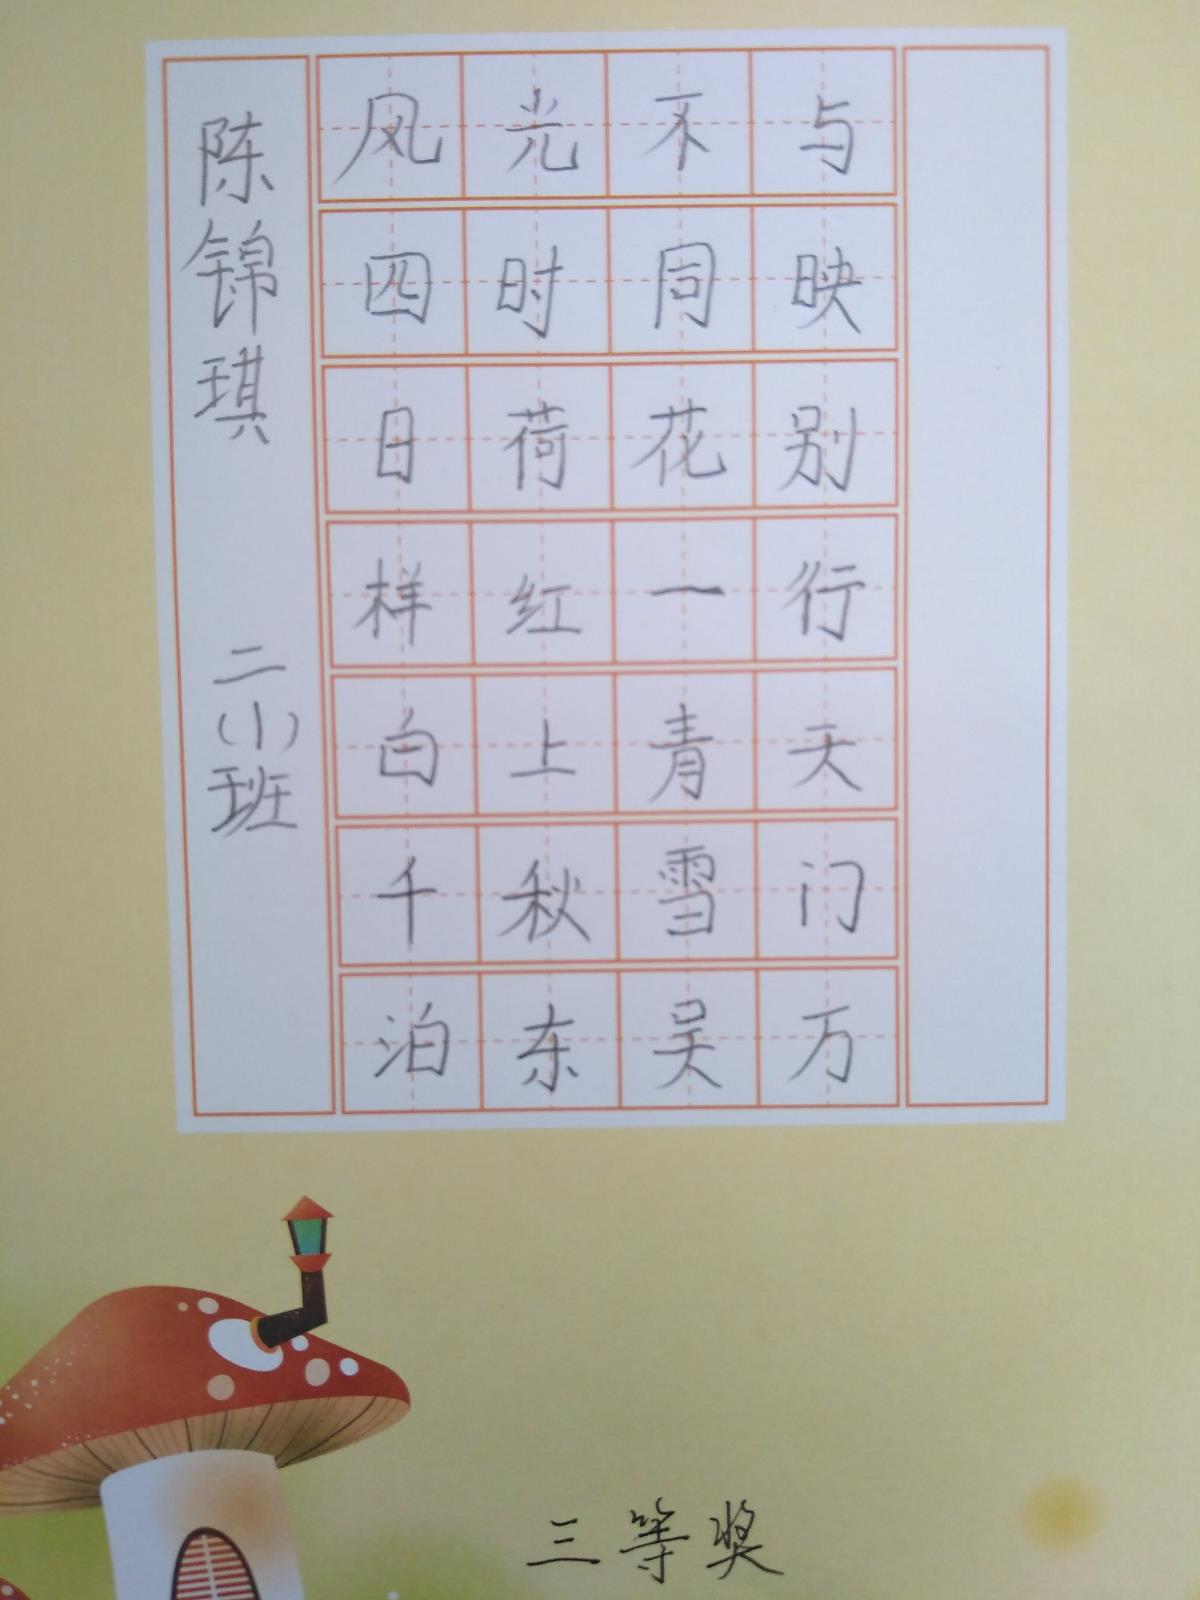 陈锦琪 二(1)班
风光不与
四时同映
日荷花别
样红一行
白上青天
千秋雪门
泊东吴万
三等奖